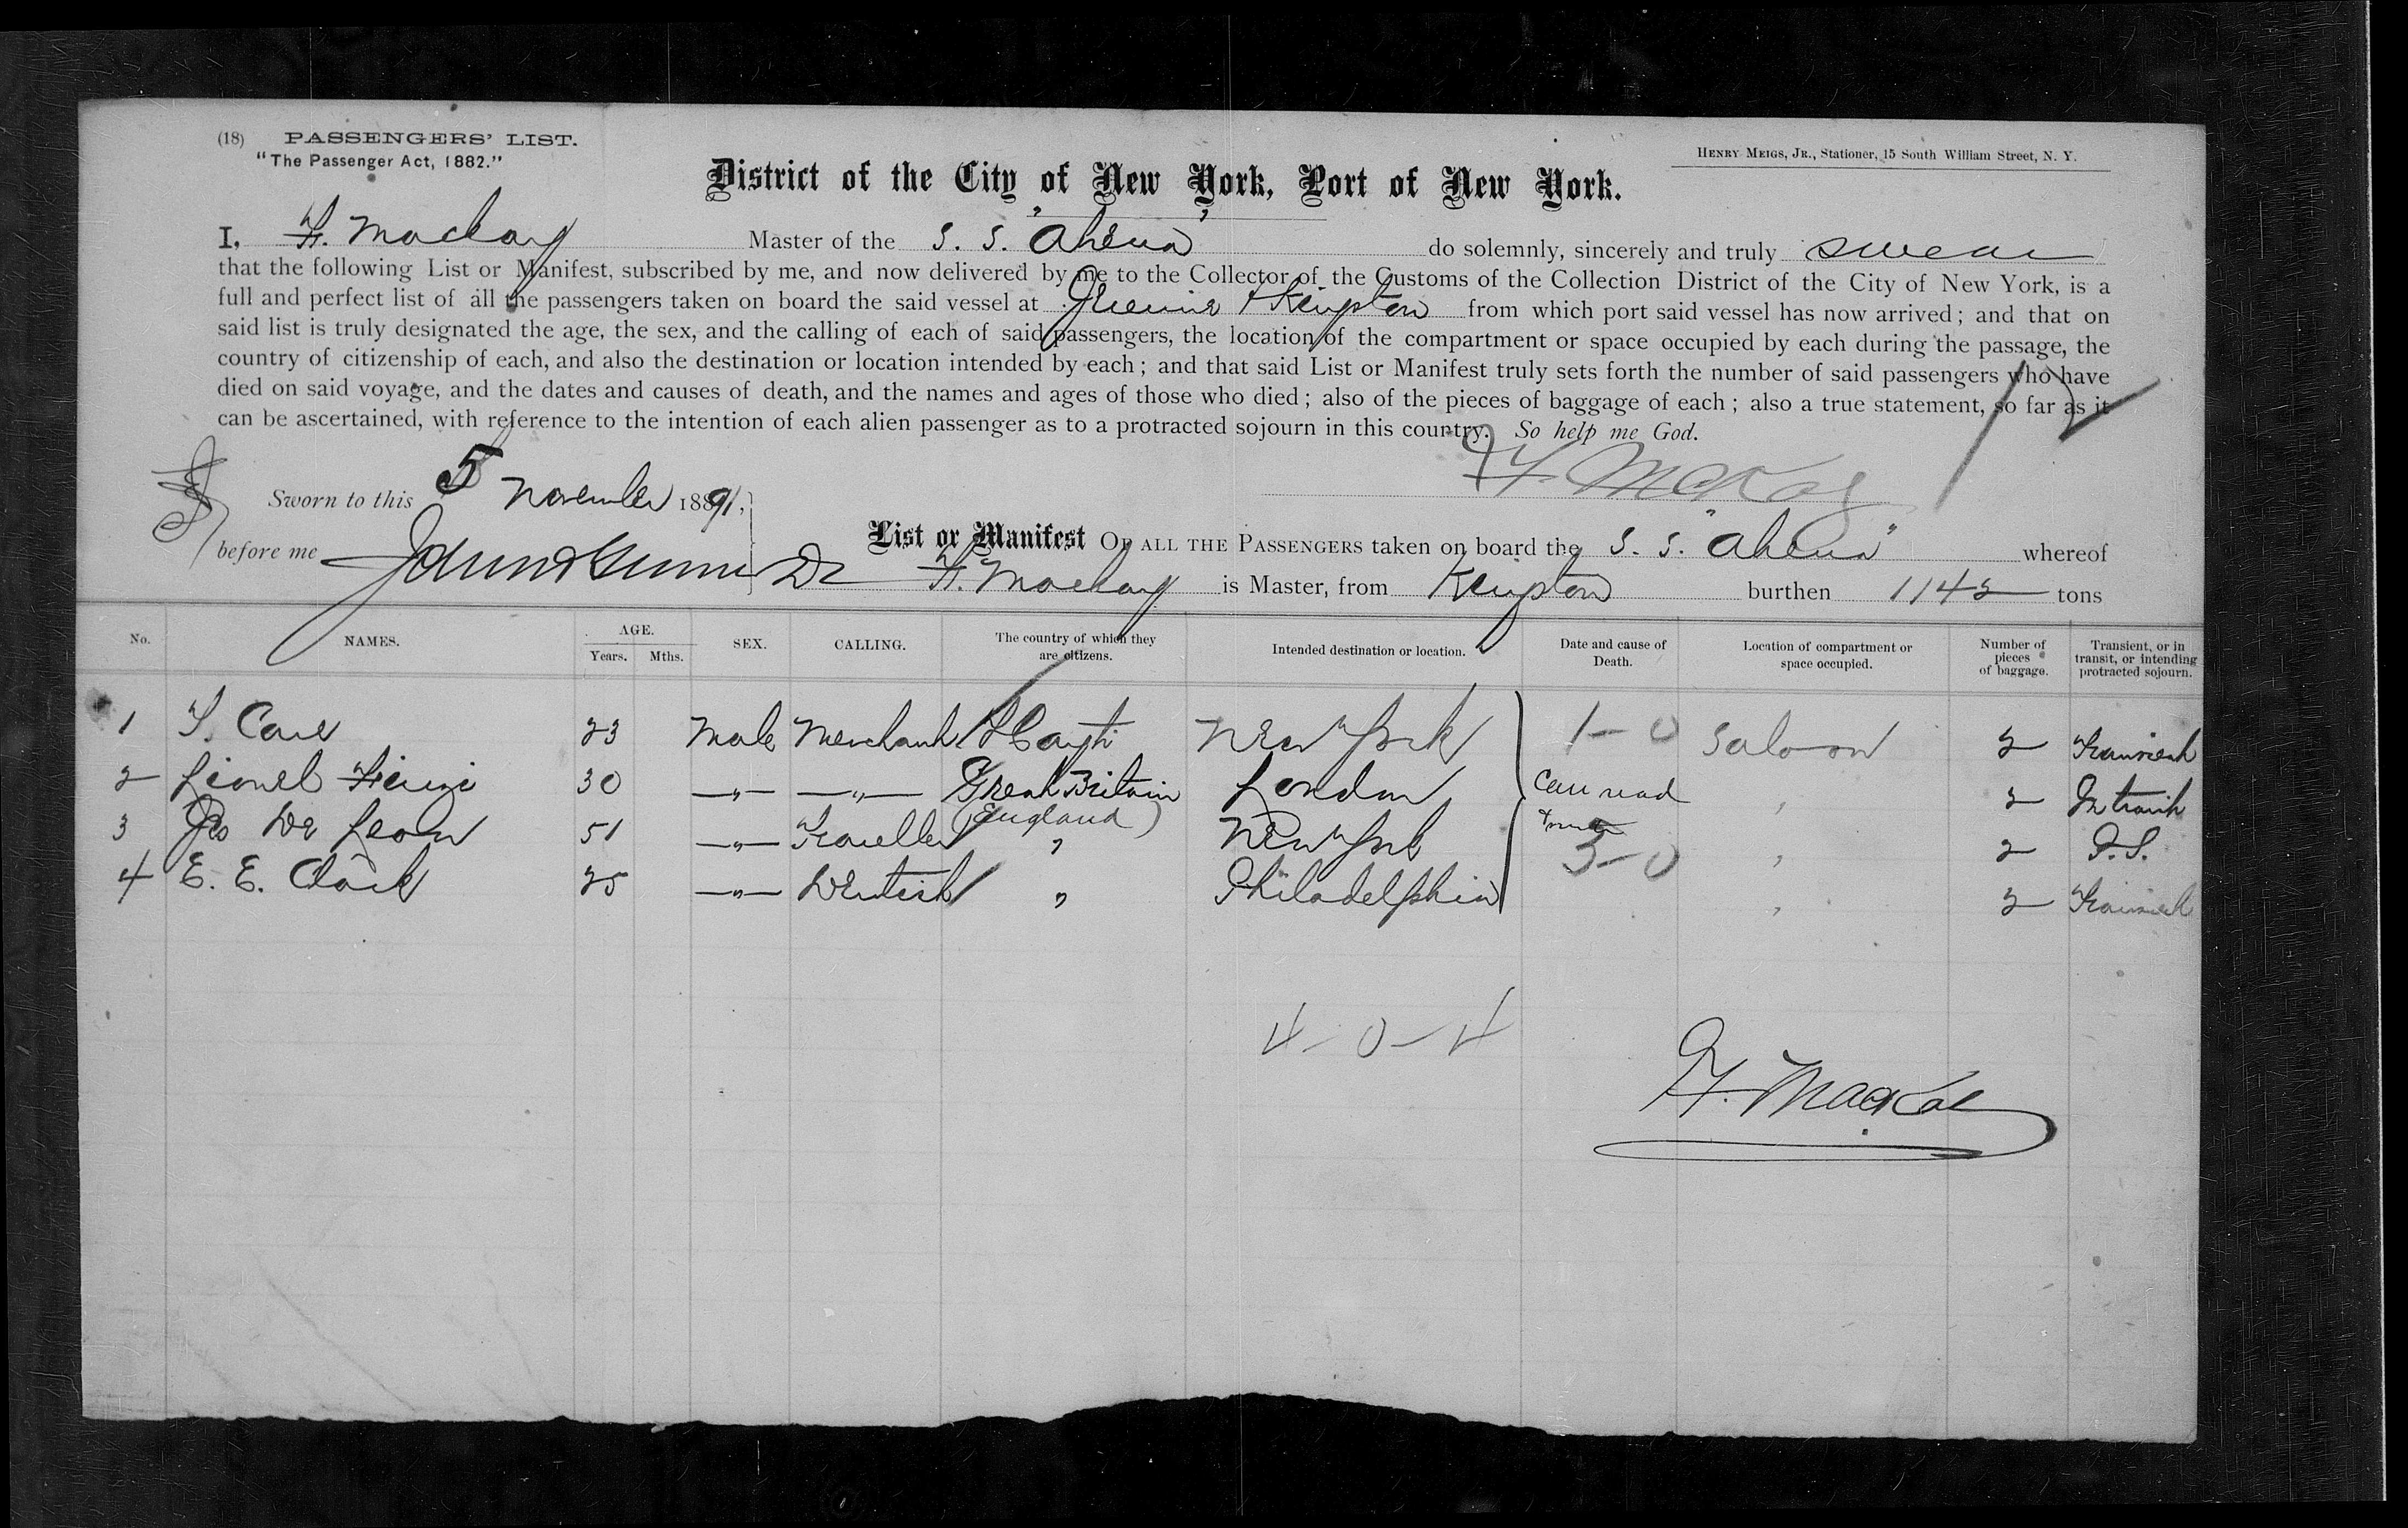 (18) PASSENGERS' LIST.
"The Passenger Act, 1882."
HENRY MEIGS, JR., Stationer, 15 South William Street, N. Y.
District of the City of New York, Port of New York.
I, F. Mackay Master of the S. S. "Athena" do solemnly, sincerely and truly swear
that the following List or Manifest, subscribed by me, and now delivered by me to the Collector of the Customs of the Collection District of the City of New York, is a
full and perfect list of all the passengers taken on board the said vessel at from which port said vessel has now arrived; and that on
said list is truly designated the age, the sex, and the calling of each of said passengers, the location of the compartment or space occupied by each during the passage, the
country of citizenship of each, and also the destination or location intended by each; and that said List or Manifest truly sets forth the number of said passengers who have
died on said voyage, and the dates and causes of death, and the names and ages of those who died; also of the pieces of baggage of each; also a true statement, so far as it
can be ascertained, with reference to the intention of each alien passenger as to a protracted sojourn in this country. So help me God.
Sworn to this 5 November 1891,
before me
List or Manifest OF ALL THE PASSENGERS taken on board the S. S. "Athena" whereof
F. Mackay is Master, from burthen 1142 tons
No. NAMES. AGE. Years. Mths. SEX. CALLING. The country of which they are citizens. Intended destination or location. Date and cause of Death. Location of compartment or space occupied. Number of pieces of baggage. Transient, or in transit, or intending protracted sojourn.
1 23 Male Merchant Hayti New York 1-0 Saloon 2 Transient
2 Lionel 30 —"— —"— Great Britain London Can read 2 In transit
(England)
3 De Leon 51 —"— Traveller " New York " 2 P.S.
3-0
4 E. E. Clark 25 —"— Dentist " Philadelphia " 2 Transient
4-0-4